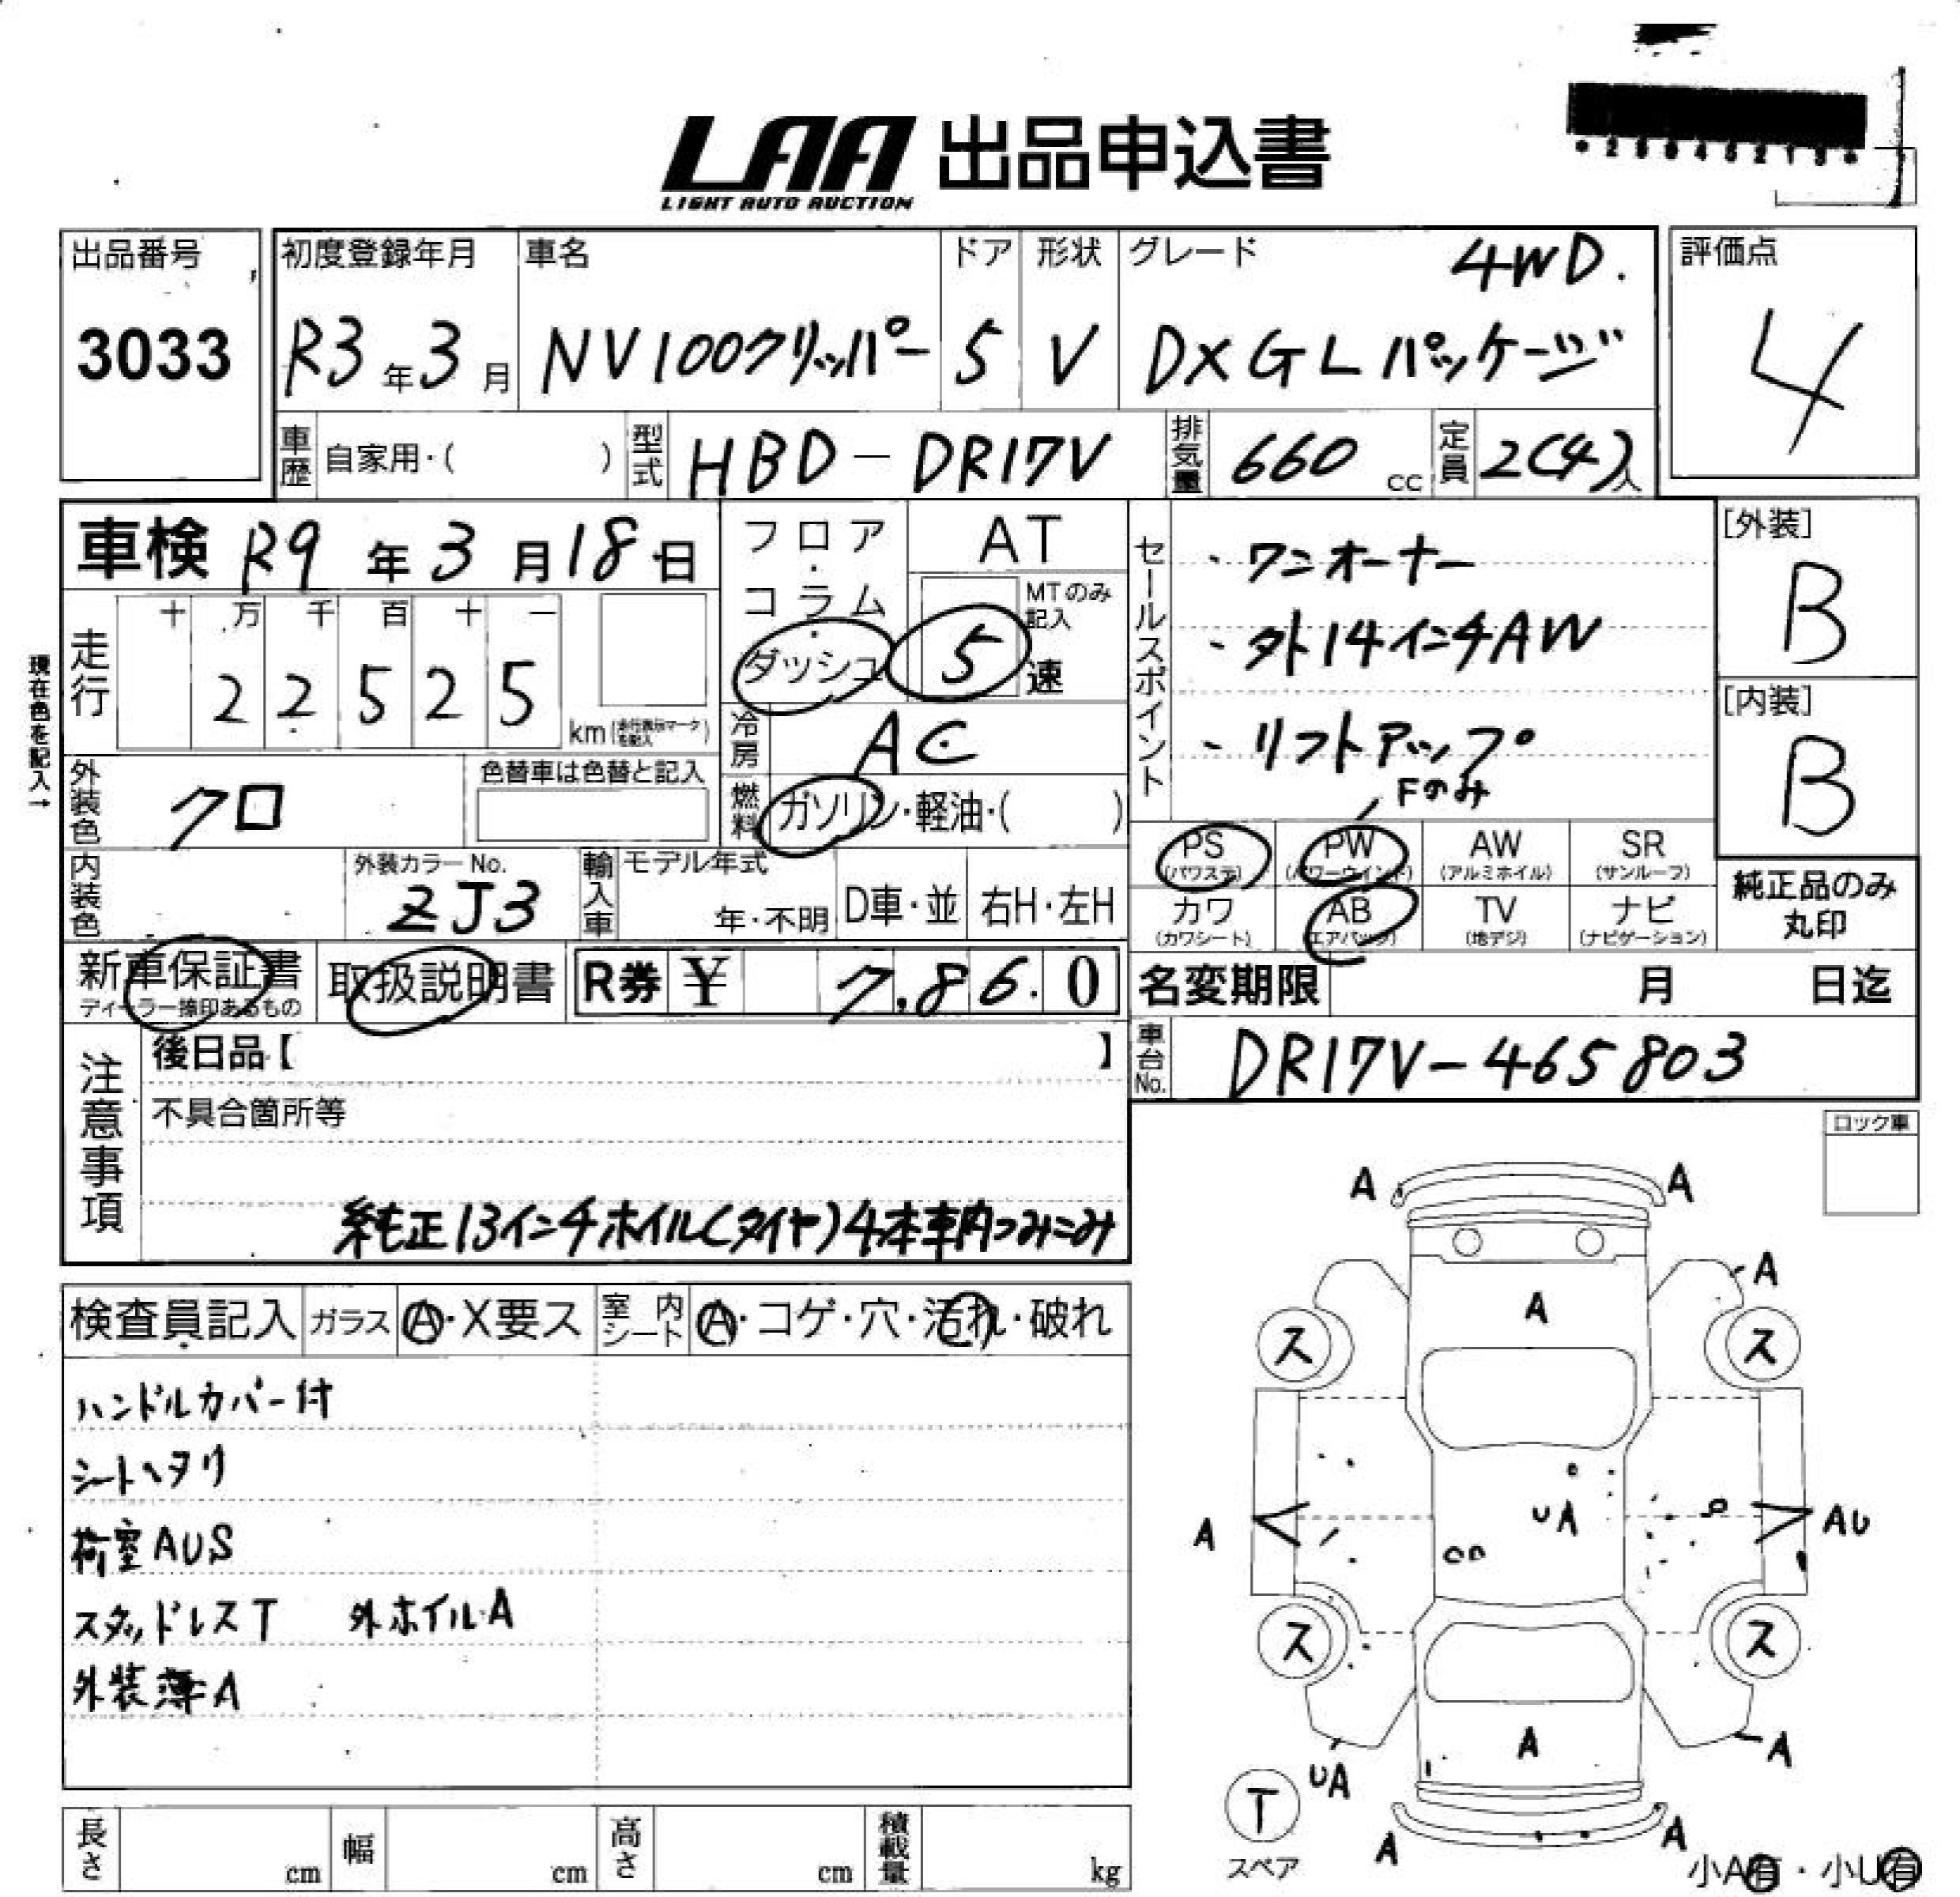 LAA 出品申込書
LIGHT AUTO AUCTION
出品番号
3033
初度登録年月
R3年3月
車名
NV100クリッパー
ドア
5
形状
V
グレード
4WD.
DX GLパッケージ
評価点
4
車歴 自家用・( )
型式 HBD-DR17V
排気量 660 cc
定員 2(4)人
車検 R9年3月18日
フロア・コラム・ダッシュ
AT
MTのみ記入
5速
現在色を記入→
走行
十 万 千 百 十 一
2 2 5 2 5
km
冷房 AC
外装色 クロ
色替車は色替と記入
燃料 ガソリン・軽油・( )
内装色
外装カラーNo.
ZJ3
輸入車
モデル年式
年・不明
D車・並
右H・左H
セールスポイント
・ワンオーナー
・外14インチAW
・リフトアップ
Fのみ
PS (パワステ)
PW (パワーウインド)
AW (アルミホイル)
SR (サンルーフ)
カワ (カワシート)
AB (エアバッグ)
TV (地デジ)
ナビ (ナビゲーション)
[外装]
B
[内装]
B
純正品のみ丸印
新車保証書
ディーラー捺印あるもの
取扱説明書
R券 ¥ 7,860
名変期限 月 日迄
車台No. DR17V-465803
注意事項
後日品【 】
不具合箇所等
純正13インチホイル(タイヤ)4本車内つみこみ
ロック車
検査員記入
ガラス A・X要ス
室内シート A・コゲ・穴・汚れ・破れ
ハンドルカバー付
シートヘタリ
荷室AUS
スタッドレスT 外ホイルA
外装薄A
A A
A
A
ス ス
UA
A AU
ス ス
A
UA A
T
スペア
A A
小A有・小U有
長さ cm
幅 cm
高さ cm
積載量 kg